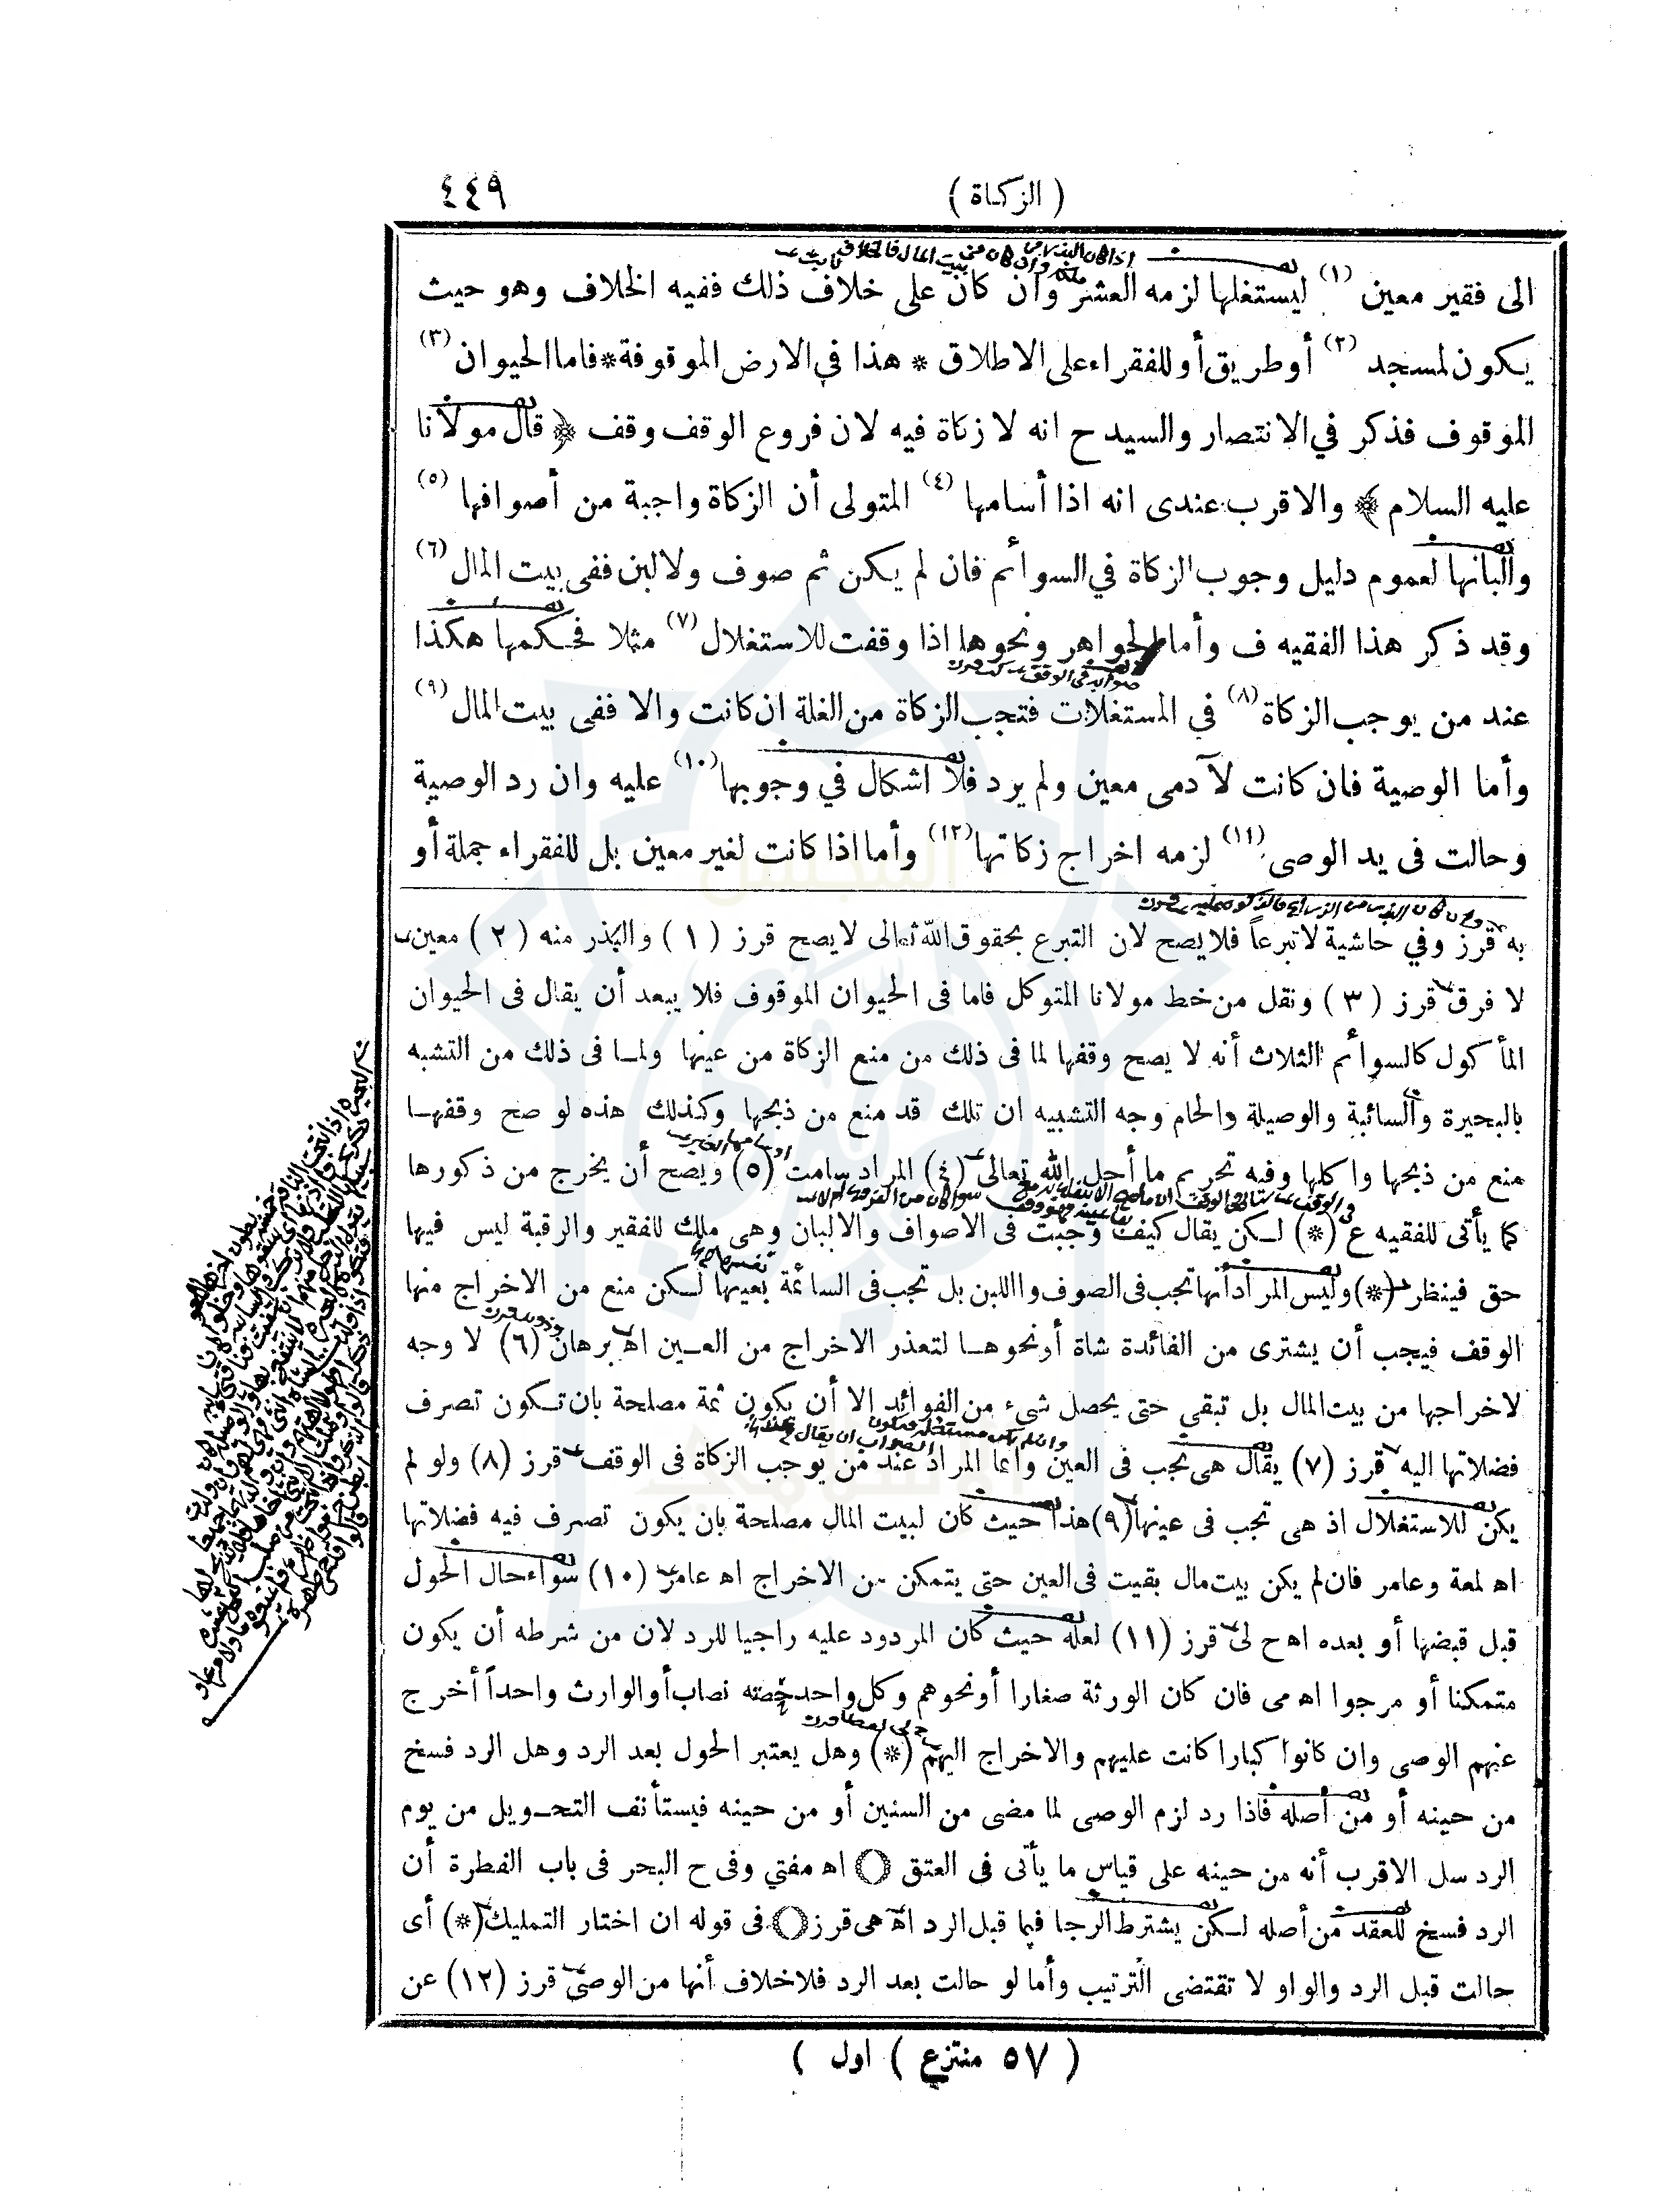 (الزكاة)
٤٤٩
الى فقير معين (١) ليستغلها لزمه العشر وان كان على خلاف ذلك ففيه الخلاف وهو حيث
يكون لمسجد (٢) أو طريق أو للفقراء على الاطلاق * هذا في الارض الموقوفة * فاما الحيوان (٣)
الموقوف فذكر في الانتصار والسيد ح انه لا زكاة فيه لان فروع الوقف وقف ﴿ قال مولانا
عليه السلام ﴾ والاقرب عندى انه اذا أسامها (٤) المتولى أن الزكاة واجبة من أصوافها (٥)
وألبانها لعموم دليل وجوب الزكاة في السوائم فان لم يكن ثم صوف ولا لبن ففى بيت المال (٦)
وقد ذكر هذا الفقيه ف وأما الجواهر ونحوها اذا وقفت للاستغلال (٧) مثلا فحكمها هكذا
عند من يوجب الزكاة (٨) في المستغلات فتجب الزكاة من الغلة ان كانت والا ففى بيت المال (٩)
وأما الوصية فان كانت لآدمى معين ولم يرد فلا اشكال في وجوبها (١٠) عليه وان رد الوصية
وحالت فى يد الوصى (١١) لزمه اخراج زكاتها (١٢) وأما اذا كانت لغير معين بل للفقراء جملة أو
به قرز وفي حاشية لا تبرعاً فلا يصح لان التبرع بحقوق الله تعالى لا يصح قرز (١) والبذر منه (٢) معين
لا فرق قرز (٣) ونقل من خط مولانا المتوكل فاما فى الحيوان الموقوف فلا يبعد أن يقال فى الحيوان
المأكول كالسوائم الثلاث أنه لا يصح وقفها لما فى ذلك من منع الزكاة من عينها ولما فى ذلك من التشبه
بالبحيرة والسائبة والوصيلة والحام وجه التشبيه ان تلك قد منع من ذبحها وكذلك هذه لو صح وقفها
منع من ذبحها واكلها وفيه تحريم ما أحل الله تعالى (٤) المراد سامت (٥) ويصح أن يخرج من ذكورها
كما يأتى للفقيه ع (*) لكن يقال كيف وجبت فى الاصواف والالبان وهى ملك للفقير والرقبة ليس فيها
حق فينظر (*) وليس المراد أنها تجب فى الصوف واللبن بل تجب فى السائمة بعينها لكن منع من الاخراج منها
الوقف فيجب أن يشترى من الفائدة شاة أو نحوها لتعذر الاخراج من العين اه برهان (٦) لا وجه
لاخراجها من بيت المال بل تبقى حتى يحصل شىء من الفوائد الا أن يكون ثمة مصلحة بان تكون تصرف
فضلاتها اليه قرز (٧) يقال هى تجب فى العين وانما المراد عند من يوجب الزكاة فى الوقف قرز (٨) ولو لم
يكن للاستغلال اذ هى تجب فى عينها (٩) هذا حيث كان لبيت المال مصلحة بان يكون تصرف فيه فضلاتها
اه لمعة وعامر فان لم يكن بيت مال بقيت فى العين حتى يتمكن من الاخراج اه عامر (١٠) سواء حال الحول
قبل قبضها أو بعده اه ح لى قرز (١١) لعله حيث كان المردود عليه راجيا للرد لان من شرطه أن يكون
متمكنا أو مرجوا اه مى فان كان الورثة صغارا أو نحوهم وكل واحد حصته نصاب أو الوارث واحداً أخرج
عنهم الوصى وان كانوا كبارا كانت عليهم والاخراج اليهم (*) وهل يعتبر الحول بعد الرد وهل الرد فسخ
من حينه أو من أصله فاذا رد لزم الوصى لما مضى من السنين أو من حينه فيستأنف التحويل من يوم
الرد سل الاقرب أنه من حينه على قياس ما يأتى فى العتق () اه مفتي وفى ح البحر فى باب الفطرة أن
الرد فسخ للعقد من أصله لكن يشترط الرجا فيما قبل الرد اه مى قرز () فى قوله ان اختار التمليك (*) أى
حالت قبل الرد والواو لا تقتضى الترتيب وأما لو حالت بعد الرد فلا خلاف أنها من الوصى قرز (١٢) عن
(٥٧ منتزع) اول)